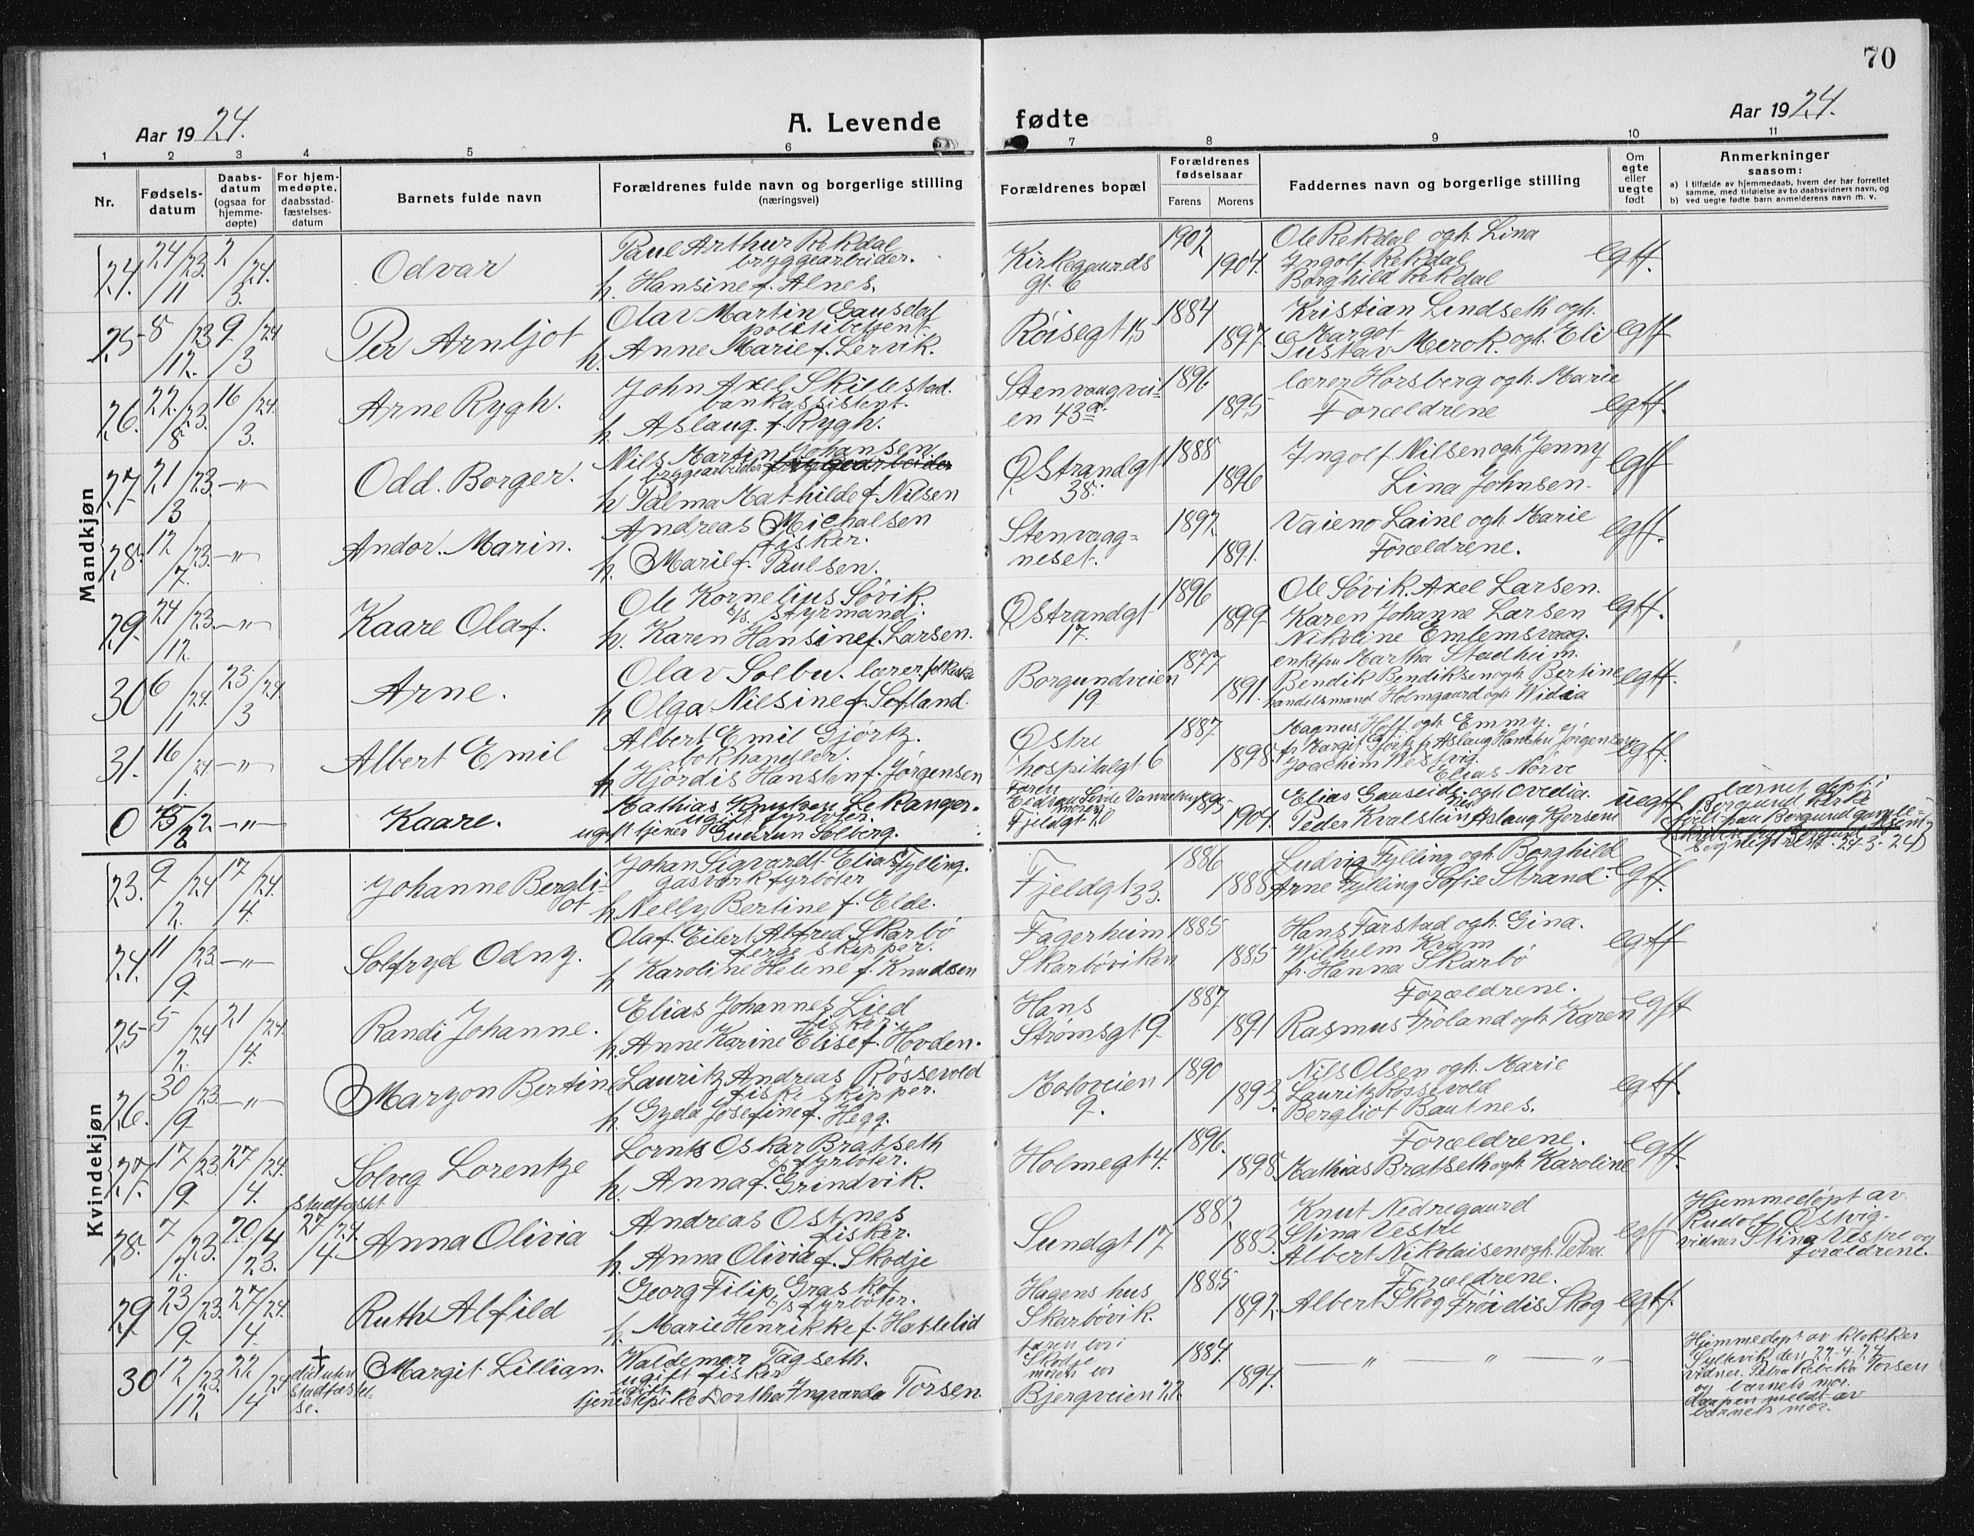 70
Aar 1924.
A. Levende fødte
Aar 1924.
1 2 3 4 5 6 7 8 9 10 11
Nr.
Fødsels-
datum
Daabs-
datum
(ogsaa for
hjemme-
døpte)
For hjem-
medøpte,
daabsstad-
fæstelses-
datum
Barnets fulde navn
Forældrenes fulde navn og borgerlige stilling
(næringsvei)
Forældrenes bopæl
Forældrenes
fødselsaar
Farens Morens
Faddernes navn og borgerlige stilling
Om
egte
eller
uegte
født
Anmerkninger
saasom:
a) I tilfælde av hjemmedaab, hvem der har forrettet
samme, med tilføielse av to daabsvidners navn, og
b) ved uegte fødte barn anmelderens navn m. v.
Mandkjøn
24. 24/11 23. 2/3. 24. Odvar
Paul Arthur Rekdal
bryggearbeider.
h. Hansine f. Alnes.
Kirkegaards
gt. 6
1902 1904.
Ole Rekdal og h. Lina
Ingolf Rekdal
Borghild Rekdal
egtf.
25 8/12. 23 9/3 24 Per Arnljot
Olav Martin Gausdal
politibetjent
h. Anne Marie f. Lervik.
Røisegt 15
1884 1897.
Kristian Lindseth og h.
Margot
Gustav Merok. og h. Eli
egtf
26. 22/8 23. 16/3. 24. Arne Rygh.
John Axel Skillestad.
bankassistent.
h Aslaug. f. Rygh.
Stenvaagvei-
en 43a.
1896 1895
lærer Horsberg og h. Marie
Forældrene
egtf.
27. 21/3 23. -"- Odd. Borger.
Nils Martin Johansen.
bryggearbeider
h Palma Mathilde f. Nilsen
Ø Strandgt
38.
1888 1896
Ingolf Nilsen og h. Jenny
Lina Johnsen.
egtf
28. 12/7. 23. -"- Andor. Marin.
Andreas Michalsen
fisker.
h. Marie f. Paulsen.
Stenvaag=
neset.
1892. 1891.
Vaieno Laine og h. Marie
Forældrene.
egtf.
29. 24/12. 23. -"- Kaare Olaf.
Ole Kornelius Søvik.
s/s styrmand.
h. Karen Hansine f. Larsen.
Ø Strandgt
17.
1896 1899
Ole Søvik. Axel Larsen.
Karen Johanne Larsen
Nikoline Emlemsvaag.
egtf.
30 6/1 24. 23/3 24. Arne.
Olav Solbu. lærer
h Olga Nilsine f. Sefland.
Borgundveien
19.
1877 1891.
enkefru Martha Stadheim.
Bendik Bendiksen og h. Bertine
handelsmand Holmgaard og h.
egtf.
31. 16/1. 24 -"- Albert Emil
Albert Emil Gjørtz.
bokhandler.
h Hjørdis Hansten f. Jørgensen
Østre
hospitalgt 6
1887 1898
Magnus Hoff. og h. Emmy.
Joachim Westvig.
Elias Norve
egtf.
0 -"- Kaare.
Mathias Knutsen Lekanger.
ugift fyrbøter.
ugift tjener Gudrun Solberg.
Faren
moren
Fjeldgt 20
1904.
Elias Gauseide og h. Ovedia.
Peder Kvalsund Aslaug Kjersem
uegtf
barnet døpt i
Borgund kirke
24-3-24
Kvindekjøn
23. 9/2. 24 17/4. 24. Johanne Bergli-
ot
Johan Sigvardt Elias Fylling.
gasverkfyrbøter
h Nelly Bertine f. Elde.
Fjeldgt 33.
1886 1888
Ludvig Fylling og h. Borghild
Arne Fylling Sofie Strand.
egtf.
24. 11/9. 23. -"- Solfryd Odny.
Olaf. Eilert Alfred Skarbø
skipper.
h Karoline Helene f. Knudsen
Fagerheim
Skarbøviken
1885 1885
Hans Farstad og h. Gina.
Wilhelm
fr. Hanna Skarbø
egtf
25 5/2. 24 21/4. 24. Randi Johanne.
Elias Johannes Lied
fisker
h. Anne Karine Elise f. Hovden.
Hans
Strømsgt 9.
1887 1891
Forældrene.
Rasmus Froland og h. Karen
egtf
26. 30/9. 23. -"- Maryon Bertin
Lauritz Andreas Røssevold
fiskeskipper.
h. Gyda Josefine f. Hegg.
Moloveien
9.
1890 1893.
Nils Olsen og h. Marie
Lauritz Rossevold
Bergliot Bautnes.
egtf.
27. 17/9. 23 27/4. 24. Solveg Lorentze
Lornts Oskar Bratseth
fyrbøter.
h. Anna f. Grindvik.
Holmegt 4.
1896. 1898.
Forældrene.
Mathias Bratseth og h. Karoline
egtf.
28. 7/12. 23. 20/4 23. stadfæst 27/4. 24 Anna Olivia
Andreas Ostnes
fisker.
h. Anna Olivia f. Skodje
Sundgt 17
1882 1883.
Knut Nedregaard
Stina Vestre
Albert Nikolaisen og h. Petra
egtf
Hjemmedøpt av
Rudolf Østvig.
vidner Stina Vestre og
forældrene.
29 23/9 23 27/4. 24. Ruth Alfild
Georg Filip Graskot
s/s fyrbøter.
h. Marie Henrikke f. Hatlelid
Hagens hus
Skarbøvik.
1885 1892.
Forældrene.
Albert Skog Frøidis Skog
egtf.
30 12/12 23. 22/4 24 † død uten
stadfæstel
se.
Margit. Lillian.
Waldemar Tagseth.
ugift fisker
ugift
tjenestepike Dorthea Ingvarda Torsen.
faren bor i
Skodje
moren bor
Bjergveien 22.
1884. 1894.
— " — " —
Hjemmedøpt av klokker
Sylkevik den 22-4-24
vidner. Petra Rebekka Torsen
og barnets mor.
daapen meldt av
barnets mor.